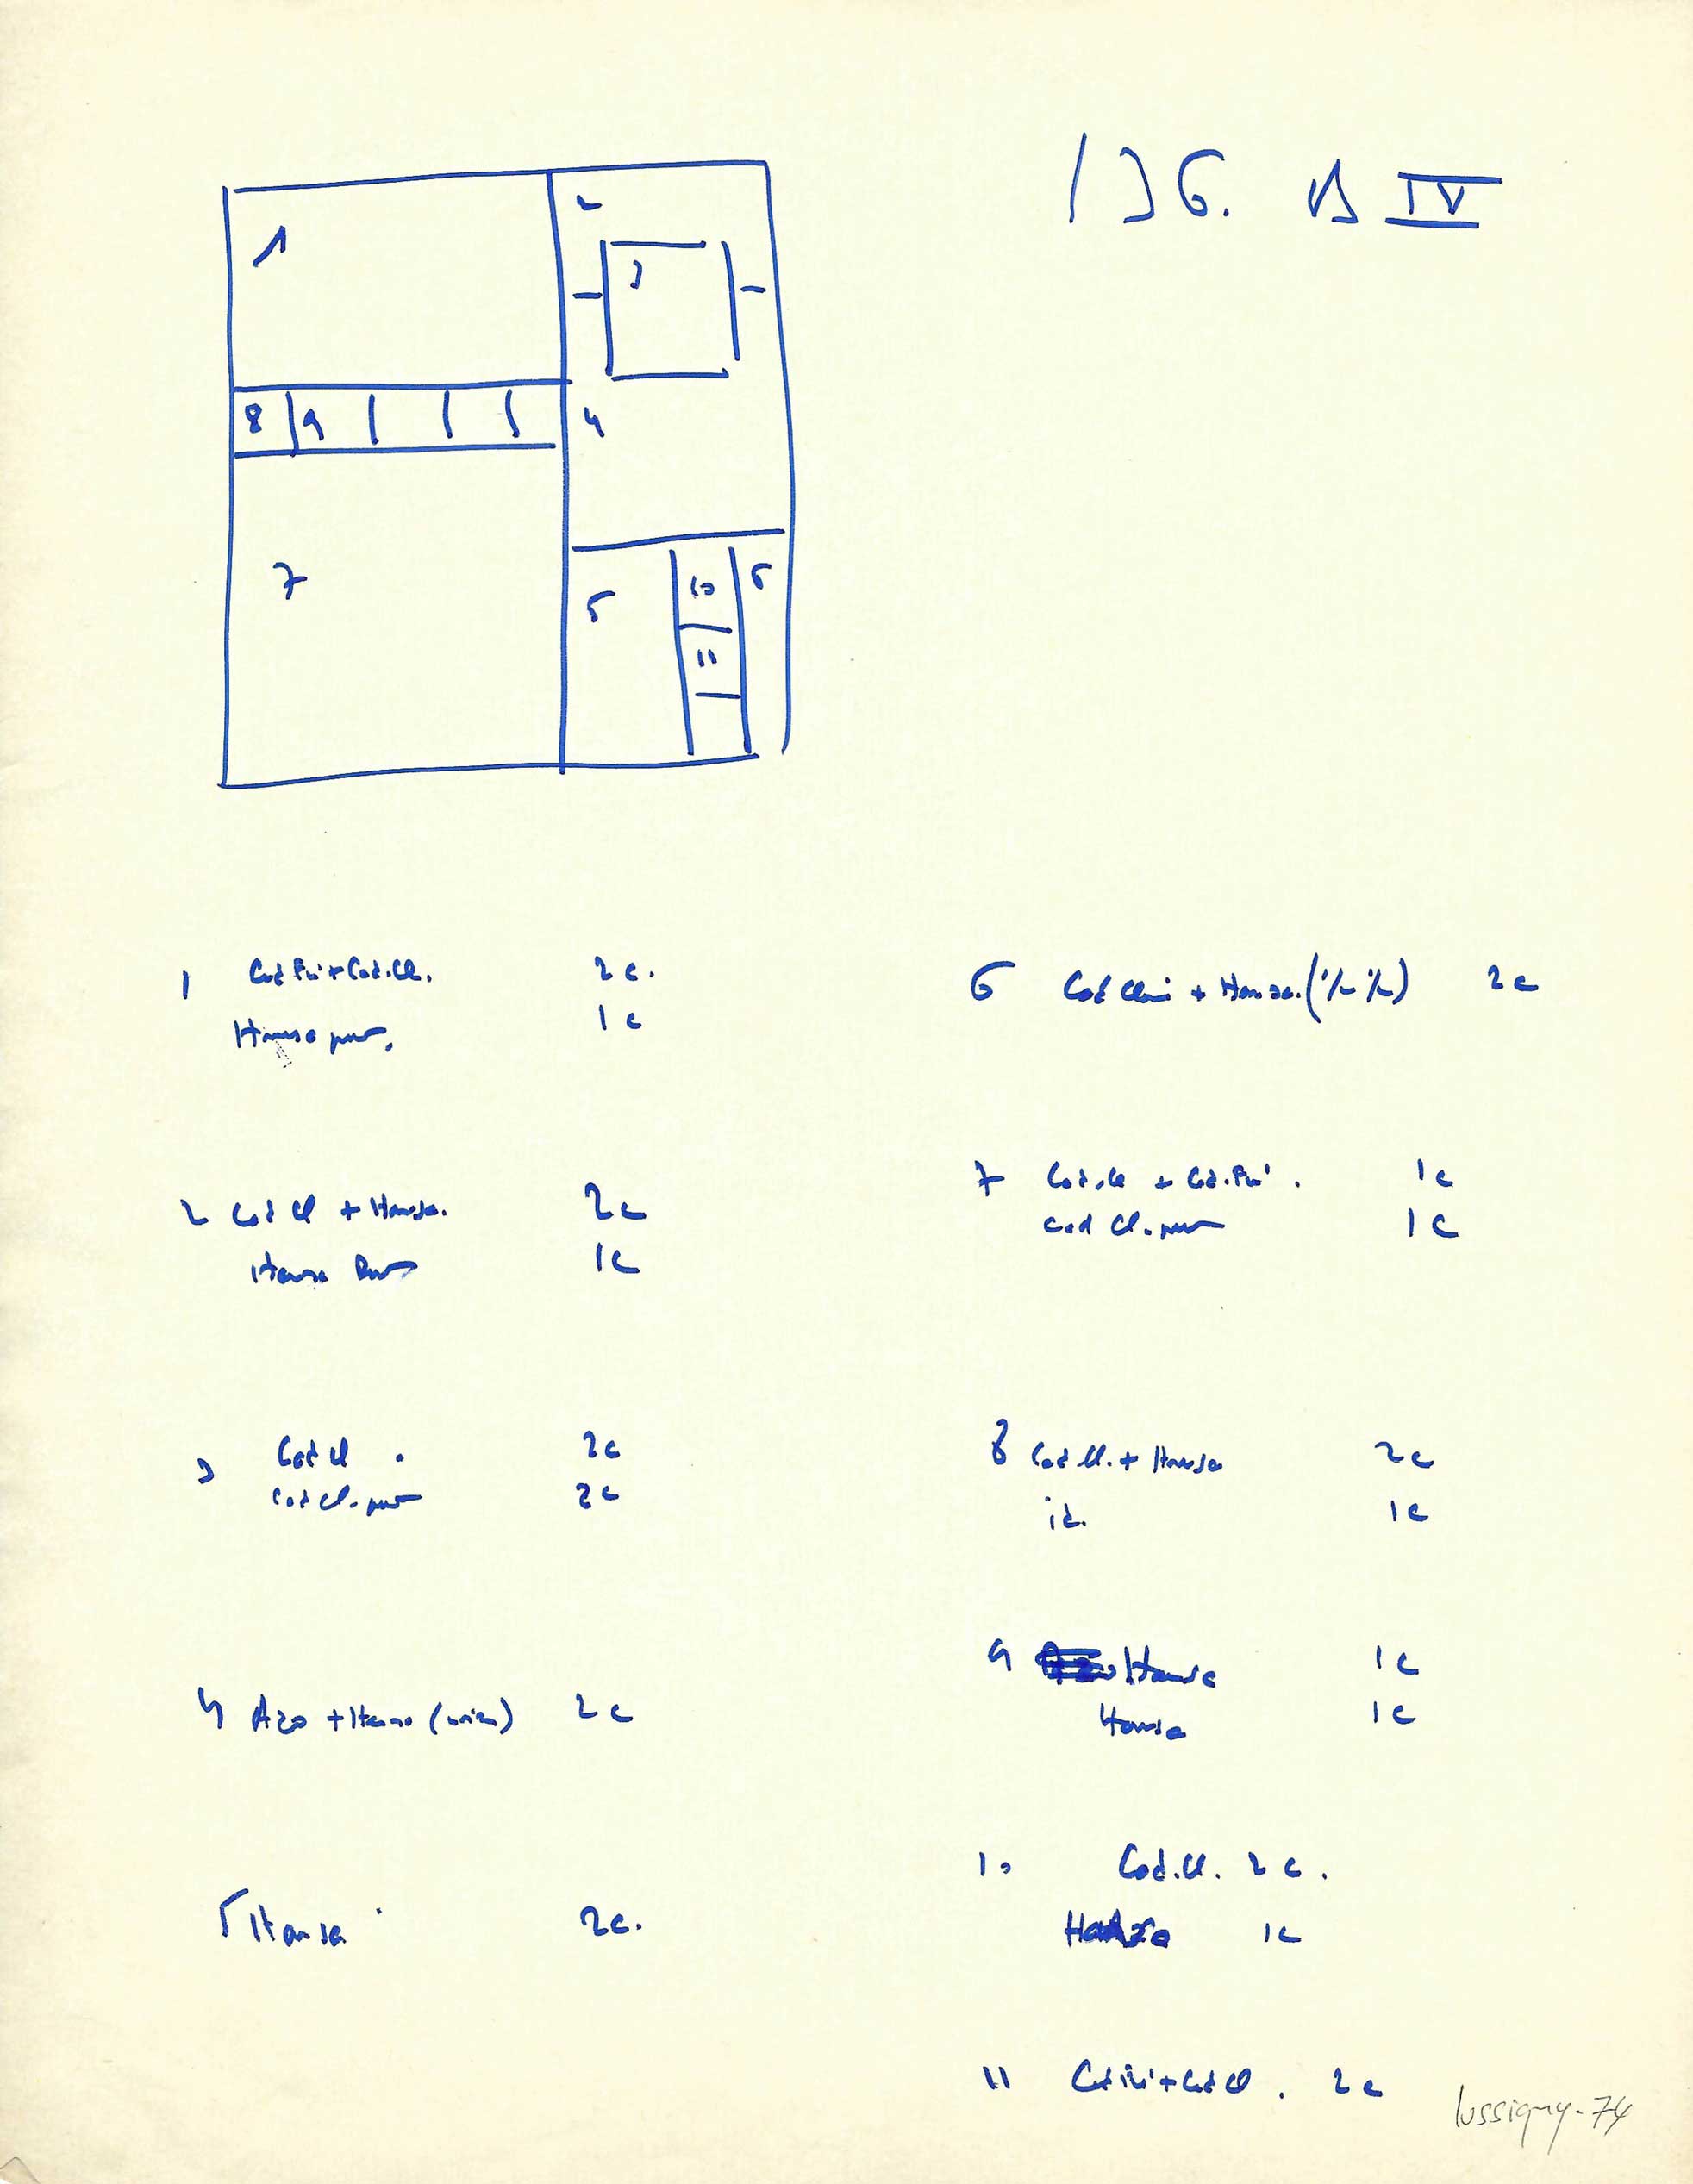 136. IV
1
2
3
8 9
4
7
5
10
6
11
1 Cad. Cl. 2 c.
1 c
2 Cad Cl + Hansa. 2 c
Hansa Pur 1 c
3 Cad Cl. 2 c
Cad Cl. pur 2 c
4 Azo + Hansa 2 c
5 Hansa 2 c.
6 + Hansa. (½ ½) 2 c
7 Cad. Cl + 1 c
Cad Cl. pur 1 c
8 Cad Cl. + Hansa 2 c
id. 1 c
9 Hansa 1 c
Hansa 1 c
10 Cad. Cl. 2 c.
Hansa 1 c
11 + Cad Cl. 2 c
lussigny-74